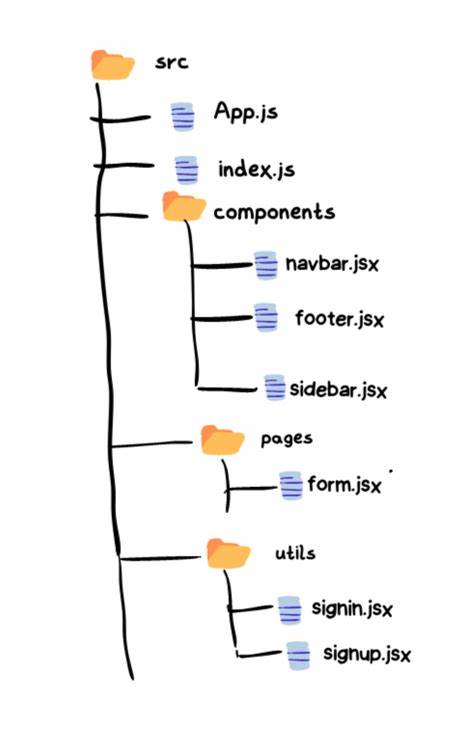 src
App.js
index.js
components
navbar.jsx
footer.jsx
sidebar.jsx
pages
form.jsx
utils
signin.jsx
signup.jsx